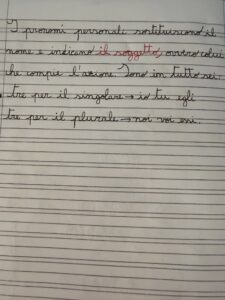 I pronomi personali sostituiscono il
nome e indicano il soggetto, ovvero colui
che compie l'azione. Sono in tutto sei:
tre per il singolare → io tu egli
tre per il plurale → noi voi essi.